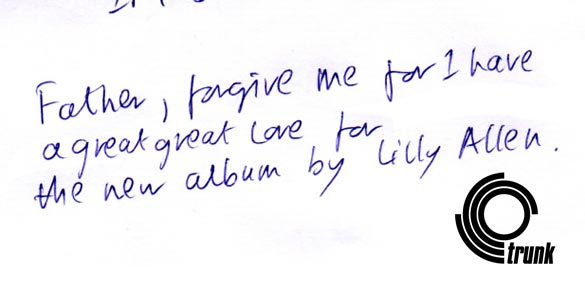 Father, forgive me for I have
a great great love for
the new album by Lilly Allen.
trunk